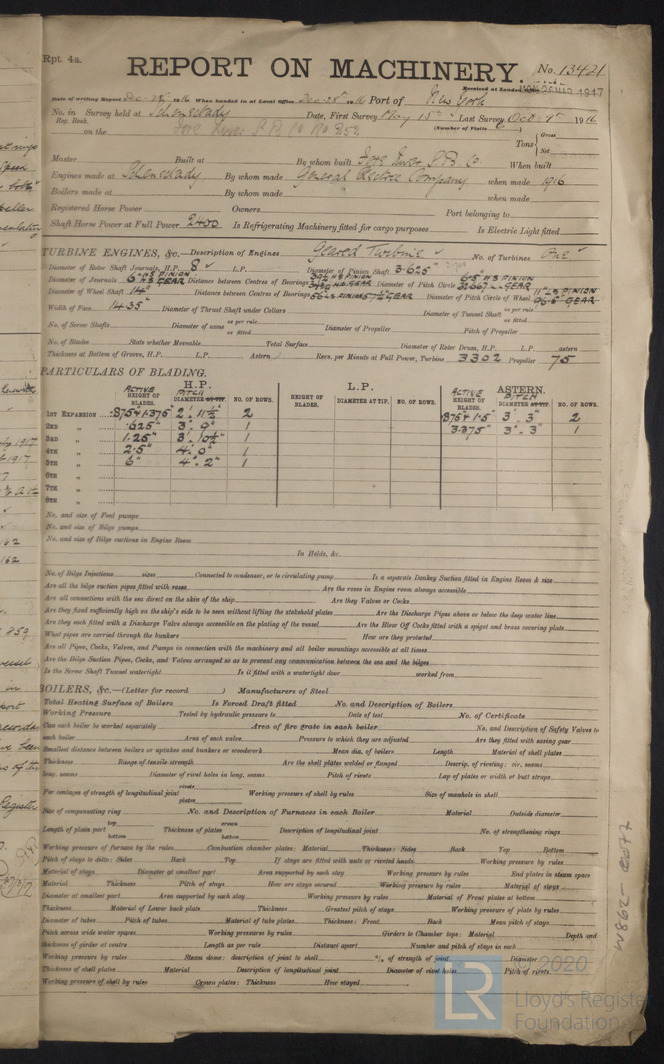 Rpt. 4a.
REPORT ON MACHINERY.
No. 13421
Received at London Office MON. 26 MAR 1917
Date of writing Report Dec. 28 1916 When handed in at Local Office Dec. 28th 1916 Port of New York
No. in Survey held at Schenectady Date, First Survey May 15th Last Survey Oct. 9th 1916
Reg. Book. (Number of Visits
on the Fore River S.B. Co No 252
Tons Gross
Net
Master Built at By whom built Fore River S.B. Co. When built
Engines made at Schenectady By whom made General Electric Company when made 1916
Boilers made at By whom made when made
Registered Horse Power Owners Port belonging to
Shaft Horse Power at Full Power 2400 Is Refrigerating Machinery fitted for cargo purposes Is Electric Light fitted
TURBINE ENGINES, &c.—Description of Engines Geared Turbine No. of Turbines One
Diameter of Rotor Shaft Journals, H.P. 8 L.P. Diameter of Pinion Shaft 3.625"
Diameter of Journals 6" H S PINION H S GEAR Distance between Centres of Bearings Diameter of Pitch Circle 6.5" H S PINION GEAR
Diameter of Wheel Shaft 14" Distance between Centres of Bearings PINION GEAR Diameter of Pitch Circle of Wheel PINION GEAR
Width of Face 14.35" Diameter of Thrust Shaft under Collars Diameter of Tunnel Shaft as per rule
as fitted
No. of Screw Shafts Diameter of same as per rule
as fitted Diameter of Propeller Pitch of Propeller
No. of Blades State whether Moveable Total Surface Diameter of Rotor Drum, H.P. L.P. astern
Thickness at Bottom of Groove, H.P. L.P. Astern Revs. per Minute at Full Power, Turbine 3302 Propeller 75
PARTICULARS OF BLADING.
H.P. L.P. ASTERN.
ACTIVE HEIGHT OF BLADES. PITCH DIAMETER AT TIP. NO. OF ROWS. HEIGHT OF BLADES. DIAMETER AT TIP. NO. OF ROWS. ACTIVE HEIGHT OF BLADES. PITCH DIAMETER AT TIP. NO. OF ROWS.
1ST EXPANSION .875 & 1.375 2' 11½" 2 .875 & 1.5" 3' 3" 2
2ND " .625" 3' 9" 1 3.375" 3' 3" 1
3RD " 1.25" 3' 10½" 1
4TH " 2.5" 4' 0" 1
5TH " 6" 4' 2" 1
6TH "
7TH "
8TH "
No. and size of Feed pumps
No. and size of Bilge pumps
No. and size of Bilge suctions in Engine Room
In Holds, &c.
No. of Bilge Injections sizes Connected to condenser, or to circulating pump Is a separate Donkey Suction fitted in Engine Room & size
Are all the bilge suction pipes fitted with roses Are the roses in Engine room always accessible
Are all connections with the sea direct on the skin of the ship Are they Valves or Cocks
Are they fixed sufficiently high on the ship's side to be seen without lifting the stokehold plates Are the Discharge Pipes above or below the deep water line
Are they each fitted with a Discharge Valve always accessible on the plating of the vessel Are the Blow Off Cocks fitted with a spigot and brass covering plate
What pipes are carried through the bunkers How are they protected
Are all Pipes, Cocks, Valves, and Pumps in connection with the machinery and all boiler mountings accessible at all times
Are the Bilge Suction Pipes, Cocks, and Valves arranged so as to prevent any communication between the sea and the bilges
Is the Screw Shaft Tunnel watertight Is it fitted with a watertight door worked from
BOILERS, &c.—(Letter for record ) Manufacturers of Steel
Total Heating Surface of Boilers Is Forced Draft fitted No. and Description of Boilers
Working Pressure Tested by hydraulic pressure to Date of test No. of Certificate
Can each boiler be worked separately Area of fire grate in each boiler No. and Description of Safety Valves to
each boiler Area of each valve Pressure to which they are adjusted Are they fitted with easing gear
Smallest distance between boilers or uptakes and bunkers or woodwork Mean dia. of boilers Length Material of shell plates
Thickness Range of tensile strength Are the shell plates welded or flanged Descrip. of riveting: cir. seams
long. seams Diameter of rivet holes in long. seams Pitch of rivets Lap of plates or width of butt straps
Per centages of strength of longitudinal joint rivets
plates Working pressure of shell by rules Size of manhole in shell
Size of compensating ring No. and Description of Furnaces in each Boiler Material Outside diameter
Length of plain part top
bottom Thickness of plates crown
bottom Description of longitudinal joint No. of strengthening rings
Working pressure of furnace by the rules Combustion chamber plates: Material Thickness: Sides Back Top Bottom
Pitch of stays to ditto: Sides Back Top If stays are fitted with nuts or riveted heads Working pressure by rules
Material of stays Diameter at smallest part Area supported by each stay Working pressure by rules End plates in steam space
Material Thickness Pitch of stays How are stays secured Working pressure by rules Material of stays
Diameter at smallest part Area supported by each stay Working pressure by rules Material of Front plates at bottom
Thickness Material of Lower back plate Thickness Greatest pitch of stays Working pressure of plate by rules
Diameter of tubes Pitch of tubes Material of tube plates Thickness: Front Back Mean pitch of stays
Pitch across wide water spaces Working pressures by rules Girders to Chamber tops: Material Depth and
thickness of girder at centre Length as per rule Distance apart Number and pitch of stays in each
Working pressure by rules Steam dome: description of joint to shell % of strength of joint Diameter
Thickness of shell plates Material Description of longitudinal joint Diameter of rivet holes Pitch of rivets
Working pressure of shell by rules Crown plates: Thickness How stayed
W892-0077
© 2020
LR
Lloyd's Register
Foundation